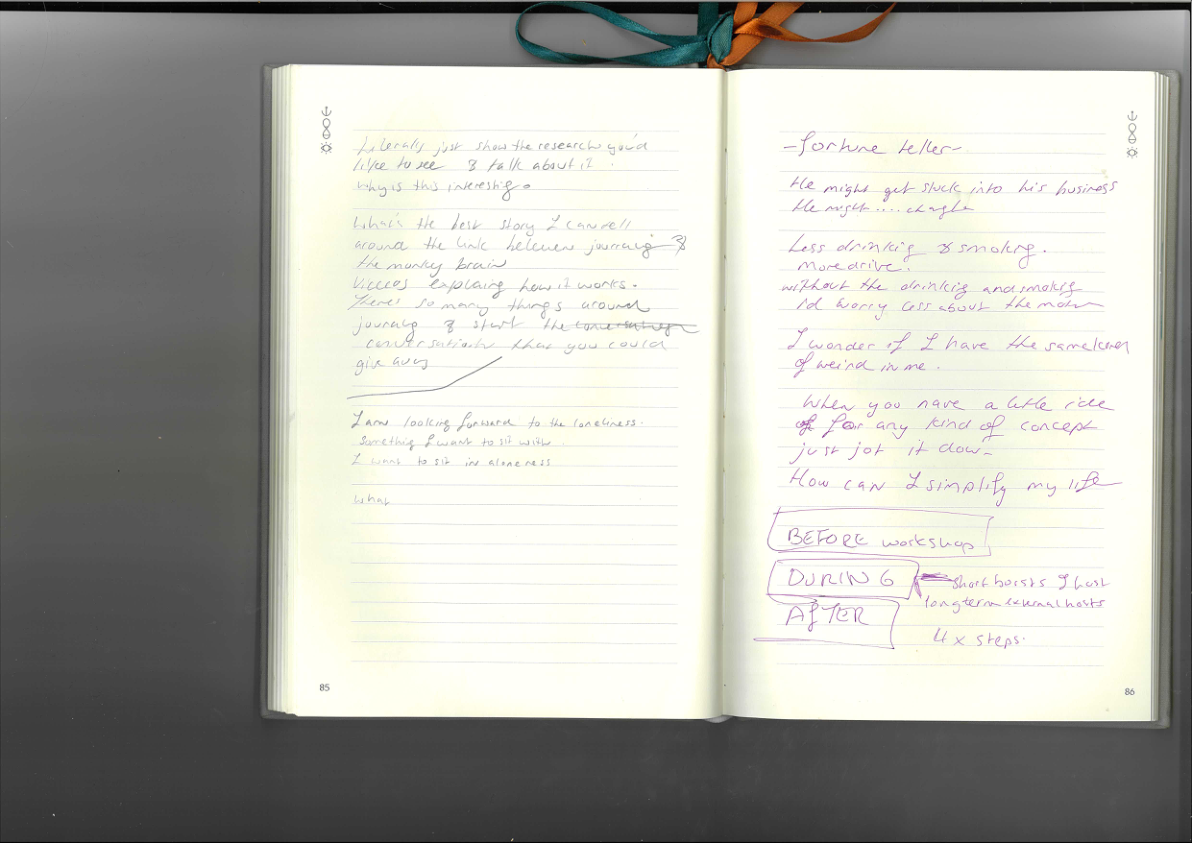 Literally just show the research you'd
like to see & talk about it.
Why is this interestig.
What's the best story I can tell
around the link between journaing &
the monkey brain
explaing how it works.
There's so many things around
journaing & start the conversation
conversation that you could
give away
I am looking forward to the loneliness.
something I want to sit with.
I want to sit in aloneness
what
85
-fortune teller-
He might get stuck into his business
He might....
Less drinking & smoking.
more drive.
without the drinking and smoking
I'd worry less about the
I wonder if I have the same
of weird in me.
When you have a little idea
of for any kind of concept
just jot it down-
How can I simplify my life
BEFORE workshop
DURING
short bursts I host
long term external hosts
AFTER
4 x steps.
86